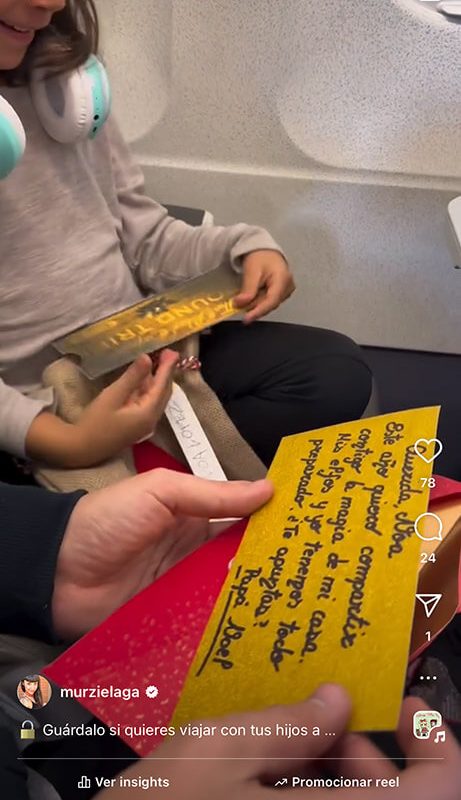 OUND TRI
LOPEZ
Querida,
Este año quiero compartir
contigo la magia de mi casa.
Mis elfos y yo tenemos todo
preparado. ¿Te apuntas?
Papá Noel
78
24
1
murzielaga
Guárdalo si quieres viajar con tus hijos a ...
Ver insights
Promocionar reel